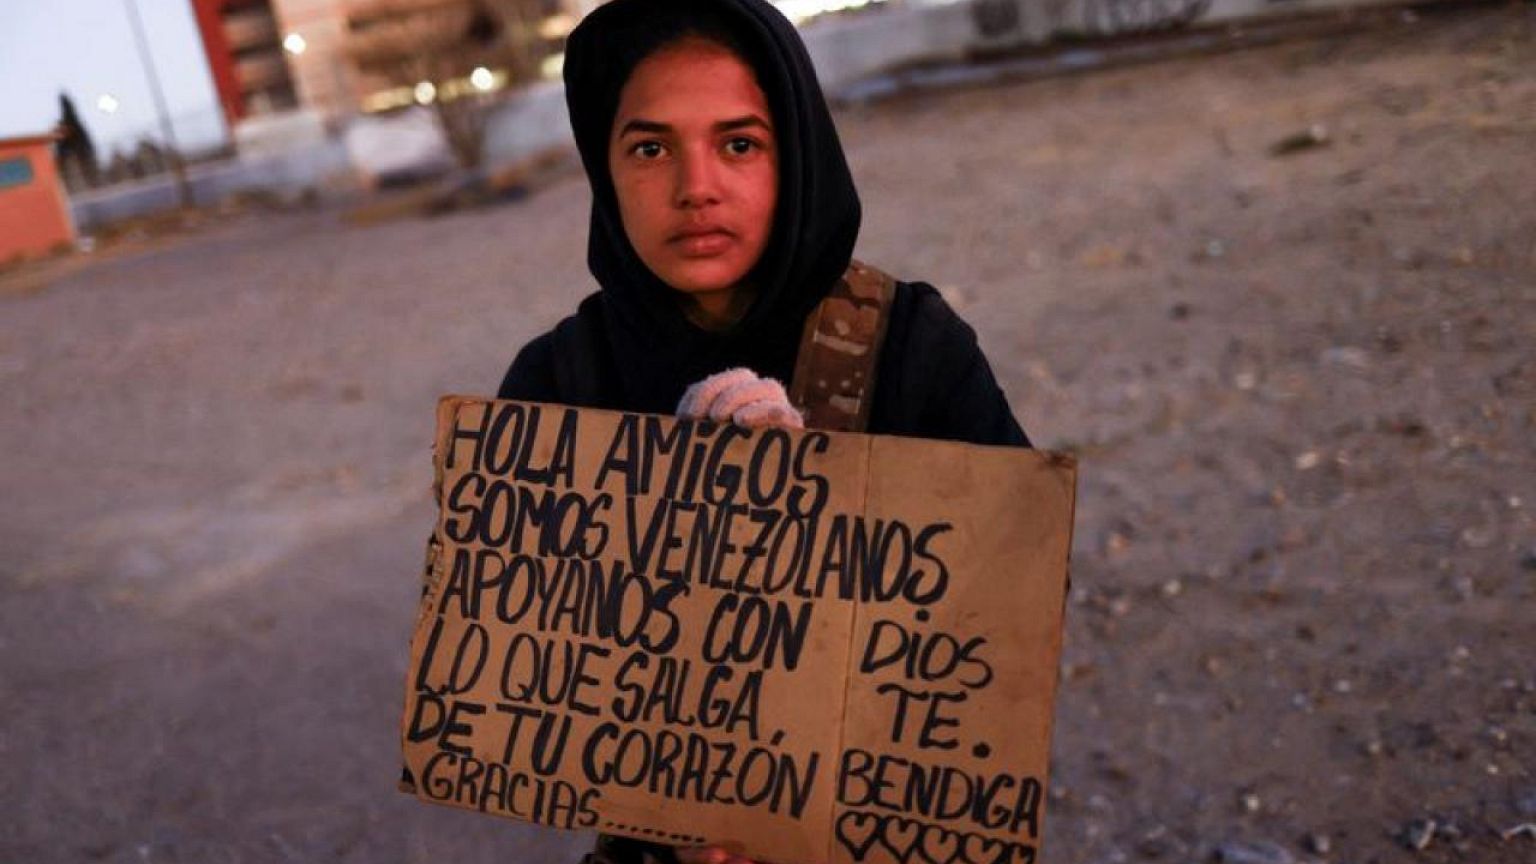 HOLA AMiGOS
SOMOS VENEZOLANOS
APOYANOS CON
LO QUE SALGA,
DE TU CORAZÓN
GRACIAS.........
DiOS
TE.
BENDIGA
♡♡♡♡♡